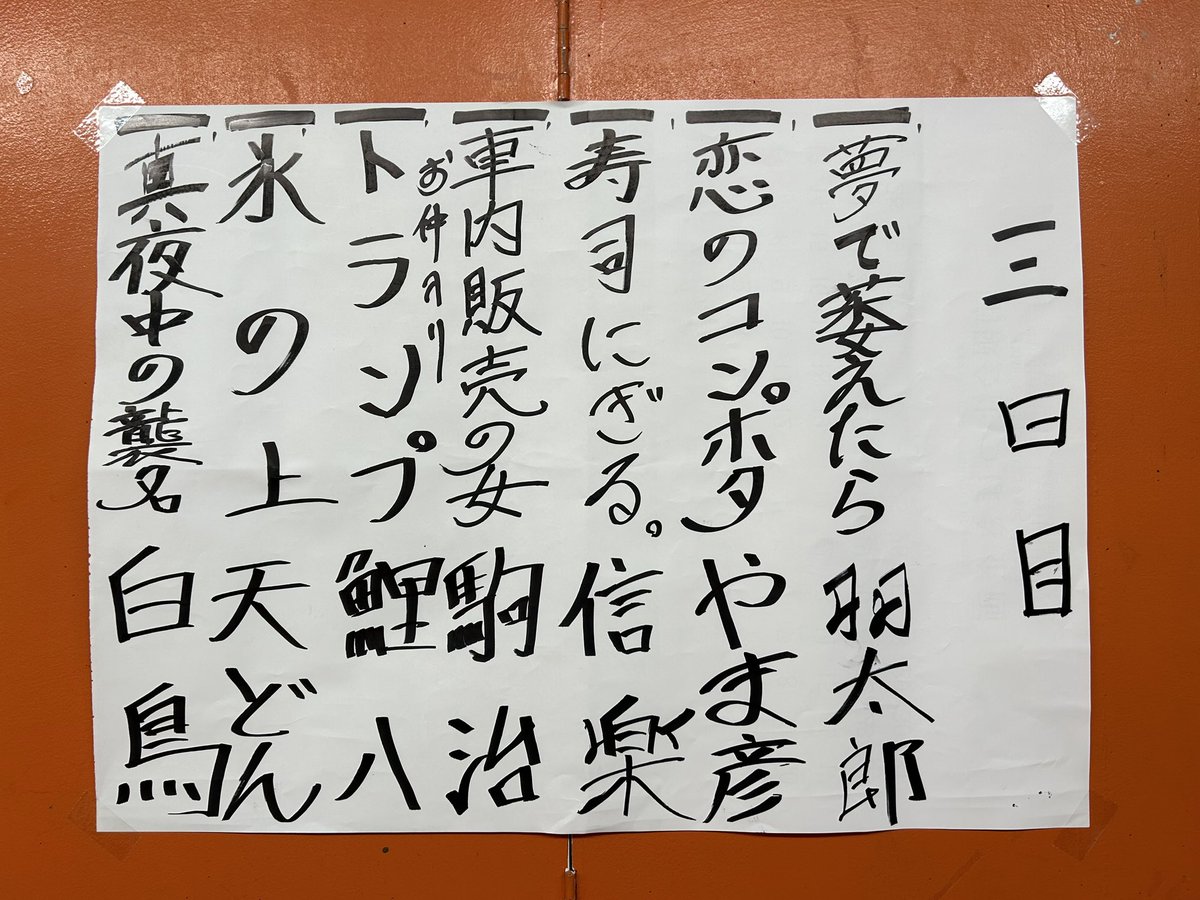 三日目
一、夢で萎えたら 羽太郎
一、恋のコンポタ やま彦
一、寿司にぎる。 信楽
一、車内販売の女 駒治
お仲入り
一、トランプ 鯉八
一、氷の上 天どん
一、真夜中の襲名 白鳥